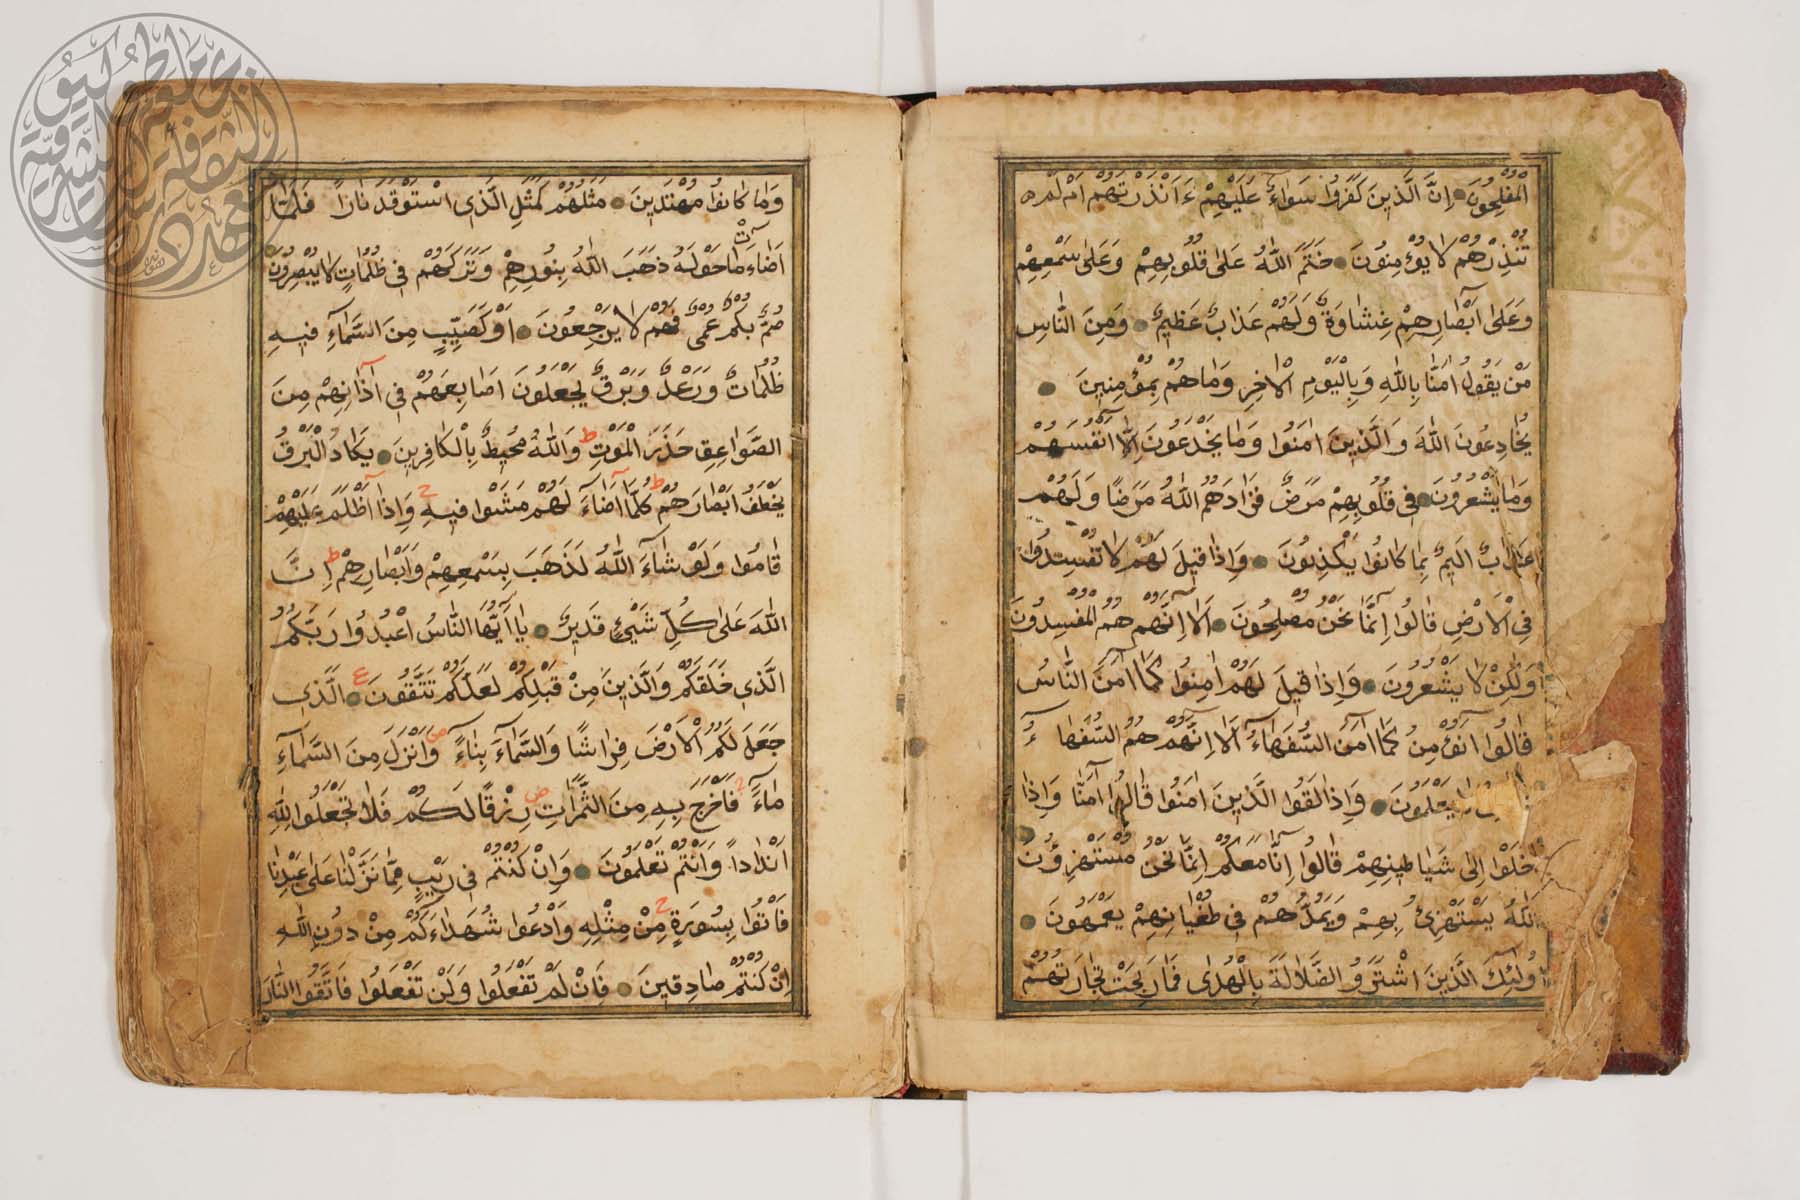 الْمُفْلِحُونَ اِنَّ الَّذٖينَ كَفَرُوا سَوَاءٌ عَلَيْهِمْ ءَاَنْذَرْتَهُمْ اَمْ لَمْ
تُنْذِرْهُمْ لَا يُؤْمِنُونَ خَتَمَ اللّٰهُ عَلٰى قُلُوبِهِمْ وَعَلٰى سَمْعِهِمْ
وَعَلٰى اَبْصَارِهِمْ غِشَاوَةٌ وَلَهُمْ عَذَابٌ عَظٖيمٌ وَمِنَ النَّاسِ
مَنْ يَقُولُ اٰمَنَّا بِاللّٰهِ وَبِالْيَوْمِ الْاٰخِرِ وَمَا هُمْ بِمُؤْمِنٖينَ
يُخَادِعُونَ اللّٰهَ وَالَّذٖينَ اٰمَنُوا وَمَا يَخْدَعُونَ اِلَّا اَنْفُسَهُمْ
وَمَا يَشْعُرُونَ فٖي قُلُوبِهِمْ مَرَضٌ فَزَادَهُمُ اللّٰهُ مَرَضًا وَلَهُمْ
عَذَابٌ اَلٖيمٌ بِمَا كَانُوا يَكْذِبُونَ وَاِذَا قٖيلَ لَهُمْ لَا تُفْسِدُوا
فِي الْاَرْضِ قَالُوا اِنَّمَا نَحْنُ مُصْلِحُونَ اَلَا اِنَّهُمْ هُمُ الْمُفْسِدُونَ
وَلٰكِنْ لَا يَشْعُرُونَ وَاِذَا قٖيلَ لَهُمْ اٰمِنُوا كَمَا اٰمَنَ النَّاسُ
قَالُوا اَنُؤْمِنُ كَمَا اٰمَنَ السُّفَهَاءُ اَلَا اِنَّهُمْ هُمُ السُّفَهَاءُ
يَعْلَمُونَ وَاِذَا لَقُوا الَّذٖينَ اٰمَنُوا قَالُوا اٰمَنَّا وَاِذَا
خَلَوْا اِلٰى شَيَاطٖينِهِمْ قَالُوا اِنَّا مَعَكُمْ اِنَّمَا نَحْنُ مُسْتَهْزِؤُنَ
اَللّٰهُ يَسْتَهْزِئُ بِهِمْ وَيَمُدُّهُمْ فٖي طُغْيَانِهِمْ يَعْمَهُونَ
اُولٰئِكَ الَّذٖينَ اشْتَرَوُا الضَّلَالَةَ بِالْهُدٰى فَمَا رَبِحَتْ تِجَارَتُهُمْ
وَمَا كَانُوا مُهْتَدٖينَ مَثَلُهُمْ كَمَثَلِ الَّذِي اسْتَوْقَدَ نَارًا فَلَمَّا
اَضَاءَتْ مَا حَوْلَهُ ذَهَبَ اللّٰهُ بِنُورِهِمْ وَتَرَكَهُمْ فٖي ظُلُمَاتٍ لَا يُبْصِرُونَ
صُمٌّ بُكْمٌ عُمْيٌ فَهُمْ لَا يَرْجِعُونَ اَوْ كَصَيِّبٍ مِنَ السَّمَاءِ فٖيهِ
ظُلُمَاتٌ وَرَعْدٌ وَبَرْقٌ يَجْعَلُونَ اَصَابِعَهُمْ فٖي اٰذَانِهِمْ مِنَ
الصَّوَاعِقِ حَذَرَ الْمَوْتِ ط وَاللّٰهُ مُحٖيطٌ بِالْكَافِرٖينَ يَكَادُ الْبَرْقُ
يَخْطَفُ اَبْصَارَهُمْ ط كُلَّمَا اَضَاءَ لَهُمْ مَشَوْا فٖيهِ ح وَاِذَا اَظْلَمَ عَلَيْهِمْ
قَامُوا وَلَوْ شَاءَ اللّٰهُ لَذَهَبَ بِسَمْعِهِمْ وَاَبْصَارِهِمْ ط اِنَّ
اللّٰهَ عَلٰى كُلِّ شَيْءٍ قَدٖيرٌ يَا اَيُّهَا النَّاسُ اعْبُدُوا رَبَّكُمُ
الَّذٖي خَلَقَكُمْ وَالَّذٖينَ مِنْ قَبْلِكُمْ لَعَلَّكُمْ تَتَّقُونَ ع الَّذٖي
جَعَلَ لَكُمُ الْاَرْضَ فِرَاشًا وَالسَّمَاءَ بِنَاءً ص وَاَنْزَلَ مِنَ السَّمَاءِ
مَاءً فَاَخْرَجَ بِهٖ مِنَ الثَّمَرَاتِ رِزْقًا لَكُمْ فَلَا تَجْعَلُوا لِلّٰهِ
اَنْدَادًا وَاَنْتُمْ تَعْلَمُونَ وَاِنْ كُنْتُمْ فٖي رَيْبٍ مِمَّا نَزَّلْنَا عَلٰى عَبْدِنَا
فَاْتُوا بِسُورَةٍ مِنْ مِثْلِهٖ ح وَادْعُوا شُهَدَاءَكُمْ مِنْ دُونِ اللّٰهِ
اِنْ كُنْتُمْ صَادِقٖينَ فَاِنْ لَمْ تَفْعَلُوا وَلَنْ تَفْعَلُوا فَاتَّقُوا النَّارَ